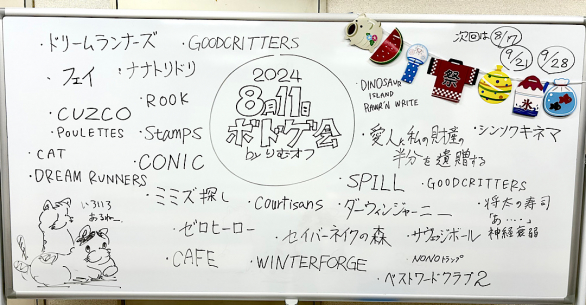 ・ドリームランナーズ
・GOODCRITTERS
次回は 8/17
9/21
9/28
・フェイ
・ナナトリドリ
2024
8月11日
ボドゲ会
by りむオフ
祭
氷
・DINOSAUR
ISLAND
RAWR'N WRITE
・ROOK
・CUZCO
・POULETTES
・Stamps
・愛人と私の見産の
半分を遺贈する
・シンソウキネマ
・CAT
・DREAM RUNNERS
・CONIC
・SPILL
・GOODCRITTERS
・ミミズ探し
・Courtisans
・ダーウィンジャーニー
・将太の寿司
「あ…」
神経衰弱
いろいろ
あるねー
・ゼロヒーロー
・セイバーネイクの森
・サヴェジボール
・CAFE
・WINTERFORGE
・NONOトランプ
・ベストワードクラブ2